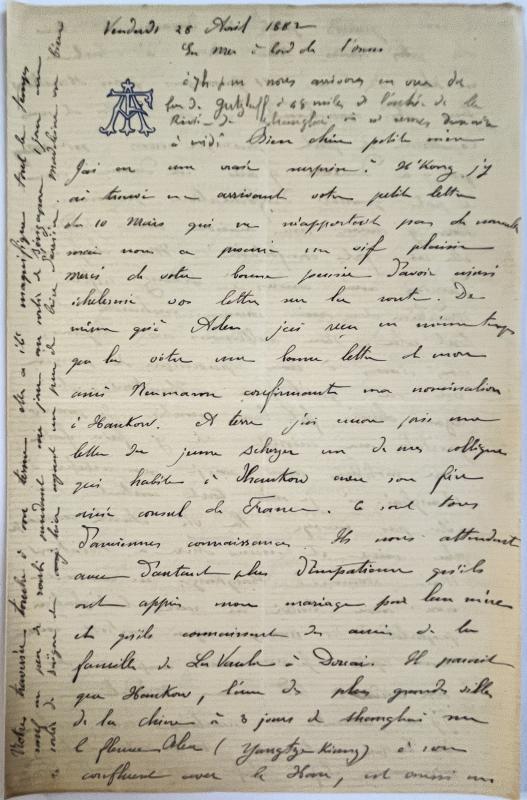 Vendredi 28 Avril 1882
En mer à bord de l'
à 7h p.m nous arrivons en vue du
feu de Gutzlaff à 68 milles de l'entrée de la
Rivière de Shanghai où nous serons demain
à midi. Bien chère petite mère
J'ai eu une vraie surprise à H'Kong j'y
ai trouvé en arrivant votre petite lettre
du 10 Mars qui ne m'apportait pas de nouvelles
mais nous a procuré un vif plaisir
merci de votre bonne pensée d'avoir ainsi
échelonné vos lettres sur la route. De
même qu'à Aden j'ai reçu en même temps
que la vôtre une bonne lettre de mon
ami Neumann confirmant ma nomination
à Hankow. A terre j'ai encore pris une
lettre du jeune Scherzer un de mes collègues
qui habite à Hankow avec son frère
vice consul de France. Ce sont tous
d'anciennes connaissances. Ils nous attendent
avec d'autant plus d'impatience qu'ils
ont appris mon mariage par leur mère
et qu'ils connaissent des amis de la
famille de La à Douai. Il paraît
que Hankow, l'une des plus grandes villes
de la Chine à 3 jours de Shanghai sur
le fleuve Bleu (Yangtze Kiang) à son
confluent avec le Han, est aussi un
Notre traversée touche à son terme elle a été magnifique tout le temps
sauf un peu de roulis pendant un jour au sortir de Singapore et un
à sortir de Saïgon en ayant un peu de Madeleine va bien